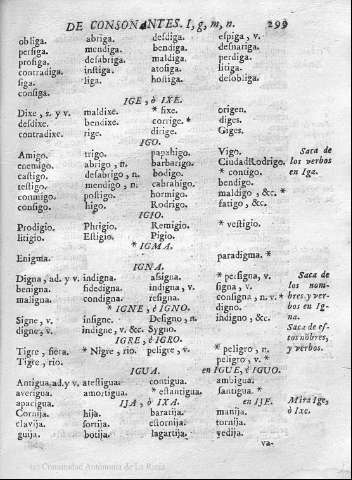 DE CONSONANTES. I, g, m, n. 299
obliga. abriga. desdiga. espiga, v.
persiga. mendiga. bendiga. desnariga.
prosiga. desabriga. maldiga. perdiga.
contradiga. instiga. atosiga. litiga.
siga. liga. hostiga. desobliga.
consiga.
IGE, ò IXE.
Dixe, s. y v. maldixe. * fixe. origen.
desdixe. bendixe. corrige. * diges.
contradixe. rige. dirige. Giges.
IGO.
Amigo. trigo. papahigo. Vigo. Saca de
enemigo. abrigo, n. barbarigo. Ciudad Rodrigo. los verbos
castigo. desabrigo, n. bodigo. * consigo. en Iga.
testigo. mendigo, n. cabrahigo. bendigo.
conmigo. postigo. hormigo. maldigo, &c. *
consigo. higo. Rodrigo. fatigo, &c.
IGIO.
Prodigio. Phrigio. Remigio. * vestigio.
litigio. Estigio. Pigio.
* IGMA.
Enigma. paradigma. *
IGNA.
Digna, ad. y v. indigna. assigna. * persigna, v. Saca de
benigna. fidedigna. indigna, v. signa, v. los nom-
maligna. condigna. resigna. consigna, n. v. * bres, y ver-
* IGNE, è IGNO. digno. bos en Ig-
Signe, v. insigne. Designo, n. indigno, &c. na.
digne, v. indigne, v. &c. Sygno. Saca de es-
IGRE, è IGRO. tos nõbres,
Tigre, fiera. * Nigre, rio. peligre, v. * peligro, n. y verbos.
Tigre, rio. peligro, v. *
IGUA. en IGUE, è IGUO.
Antigua, ad. y v. atestigua. contigua. ambigua.
averigua. amortigua. * estantigua. santigua. *
apacigua. IJA, ò IXA. en IJE. Mira Ige,
Cornija. hija. baratija. manija. ò Ixe.
clavija. sortija. estornija. tornija.
guija. botija. lagartija. vedija.
va-
(c) Comunidad Autónoma de La Rioja